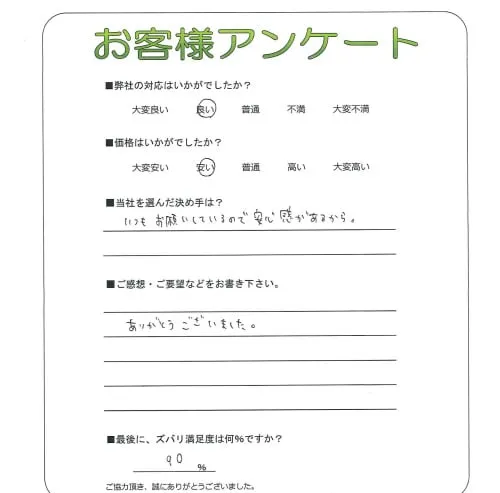 お客様アンケート
■弊社の対応はいかがでしたか？
大変良い 良い 普通 不満 大変不満
■価格はいかがでしたか？
大変安い 安い 普通 高い 大変高い
■当社を選んだ決め手は？
いつもお願いしているので安心感があるから。
■ご感想・ご要望などをお書き下さい。
ありがとうございました。
■最後に、ズバリ満足度は何%ですか？
90 %
ご協力頂き、誠にありがとうございました。